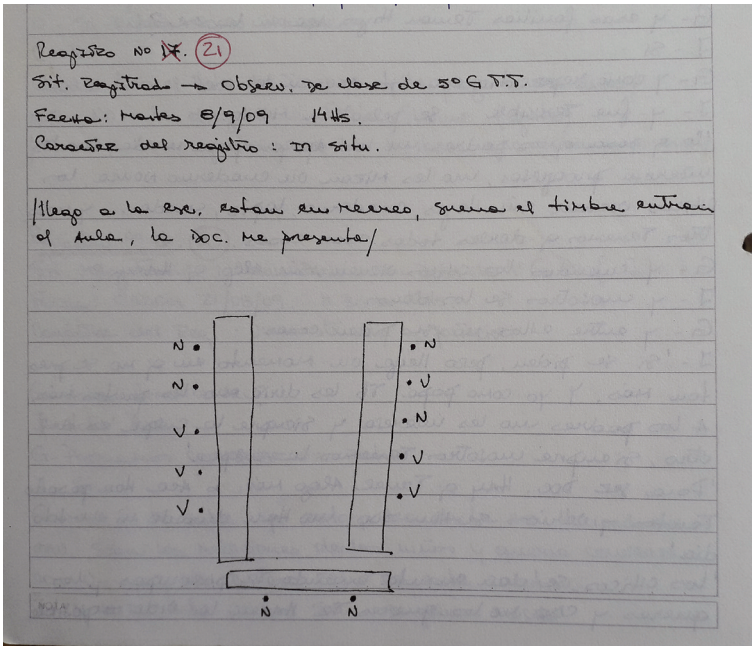 Registro No 17. 21
Sit. Registrada → Observ. De clase de 5º G T.T.
Fecha: Martes 8/9/09 14Hs.
Caracter del registro: In Situ.
/llego a la esc. estan en recreo, suena el timbre entran
al Aula, la Doc. me presenta/
N N
N V
V N
V V
V V
N N